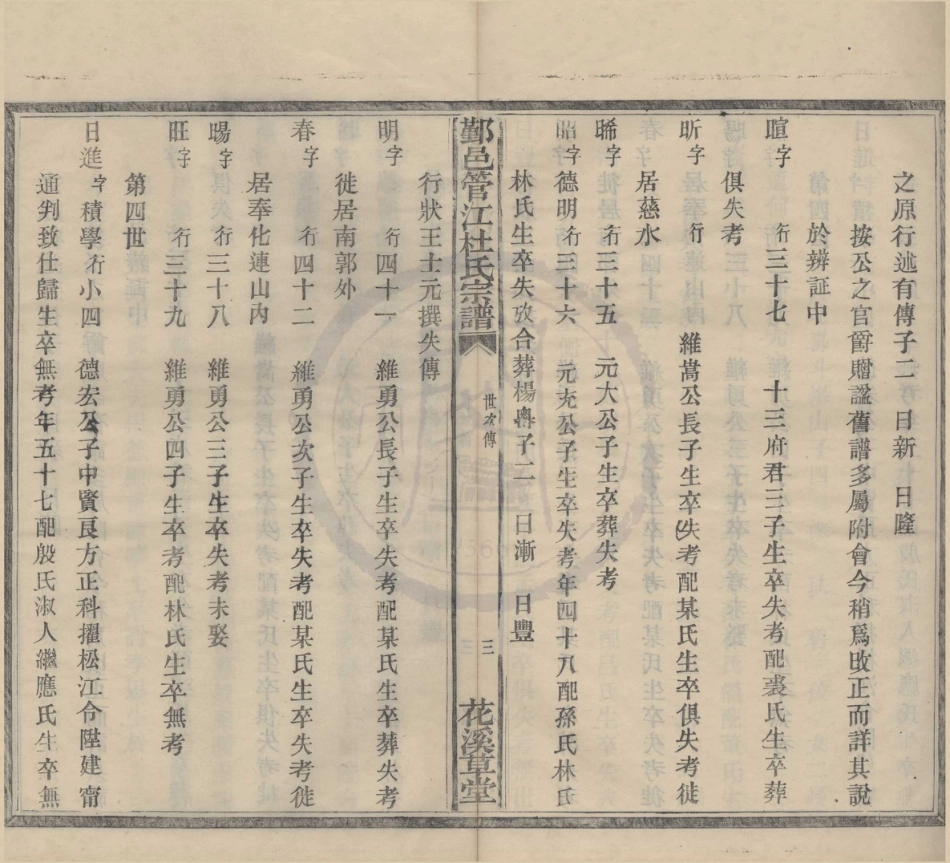 之原行述有傳子二 日新 日隆
按公之官爵贈謚舊譜多屬附會今稍爲攺正而詳其說
於辨証中
暄字 行三十七 十三府君三子生卒失考配裘氏生卒葬
俱失考
昕字 行 維嵩公長子生卒失考配某氏生卒俱失考徙
居慈水
晞字 行三十五 元大公子生卒葬失考
昭字德明行三十六 元充公子生卒失考年四十八配孫氏林氏
林氏生卒失攷合葬楊嶴子二 日漸 日豐
鄞邑管江杜氏宗譜
世次傳
三
花溪草堂
行狀王士元撰失傳
明字 行四十一 維勇公長子生卒失考配某氏生卒葬失考
徙居南郭外
春字 行四十二 維勇公次子生卒失考配某氏生卒失考徙
居奉化連山內
暘字 行三十八 維勇公三子生卒失考未娶
旺字 行三十九 維勇公四子生卒考配林氏生卒無考
第四世
日進字積學行小四 德宏公子中賢良方正科擢松江令陞建甯
通判致仕歸生卒無考年五十七配殷氏淑人繼應氏生卒無